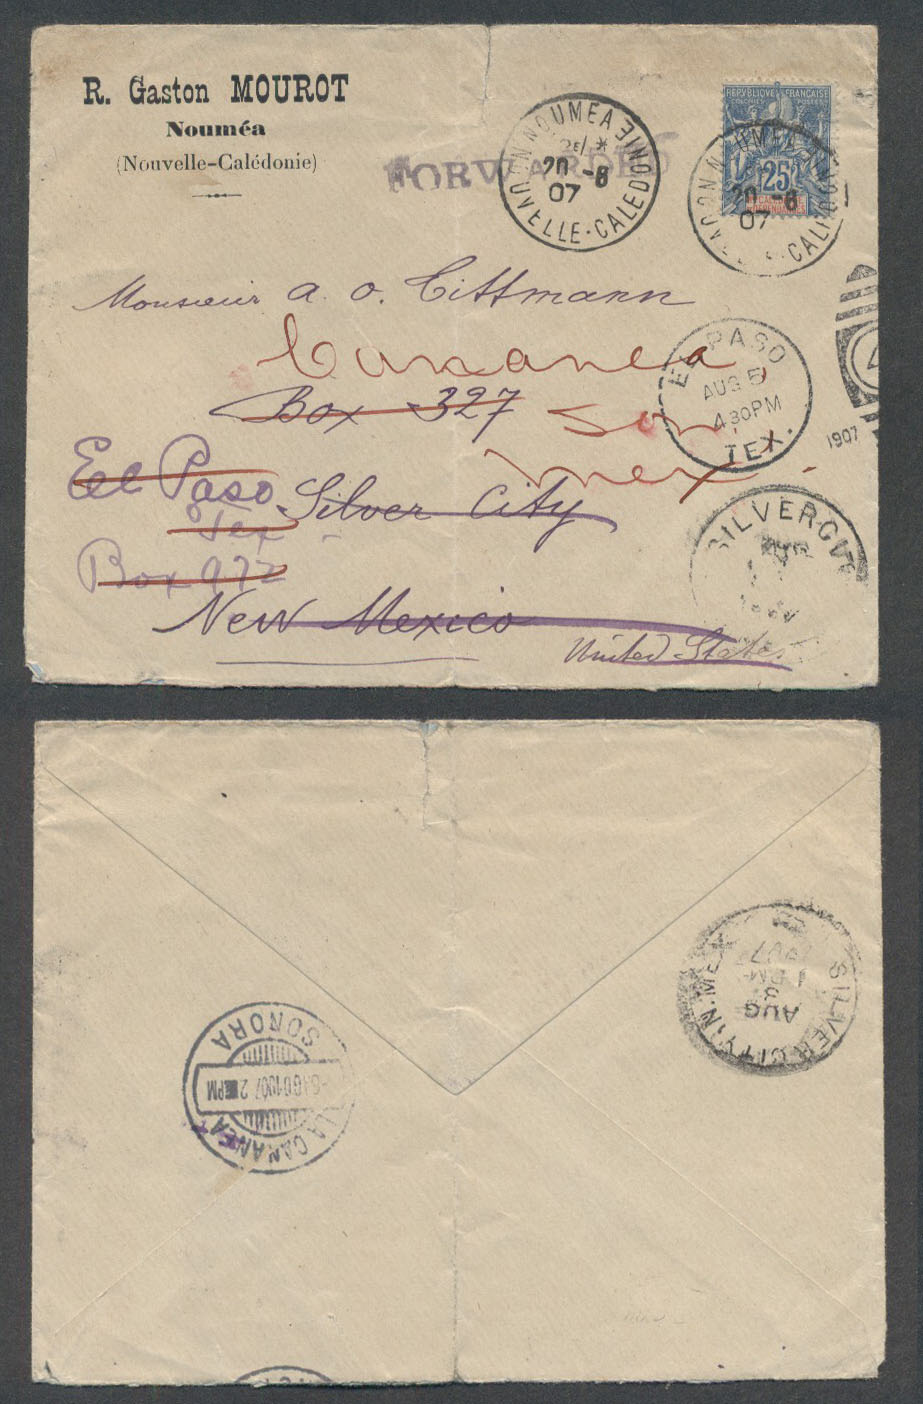 R. Gaston MOUROT
Nouméa
(Nouvelle-Calédonie)
FORWARDED
NOUMEA
20 -6
07
NOUVELLE-CALEDONIE
REPUBLIQUE FRANÇAISE
COLONIES POSTES
25
NOUMEA
20 -6
07
Monsieur A. O. Tittmann
Cananea,
Box 327
Son,
El Paso
mex.
Silver City
Tex
Box 972
New Mexico
United States
EL PASO
AUG 5
4 30 PM
TEX.
1907
SILVER CITY
SILVER CITY, N. MEX.
AUG
3
1 PM
1907
LA CANANEA
2 PM
SONORA